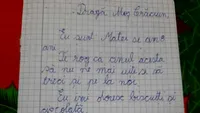 Dragă Moș Crăciun,
Eu sunt Matei și am 8
ani.
Te rog ca anul acesta
să nu ne mai uiți și să
treci și pe la noi.
Eu îmi doresc biscuiți și
ciocolată